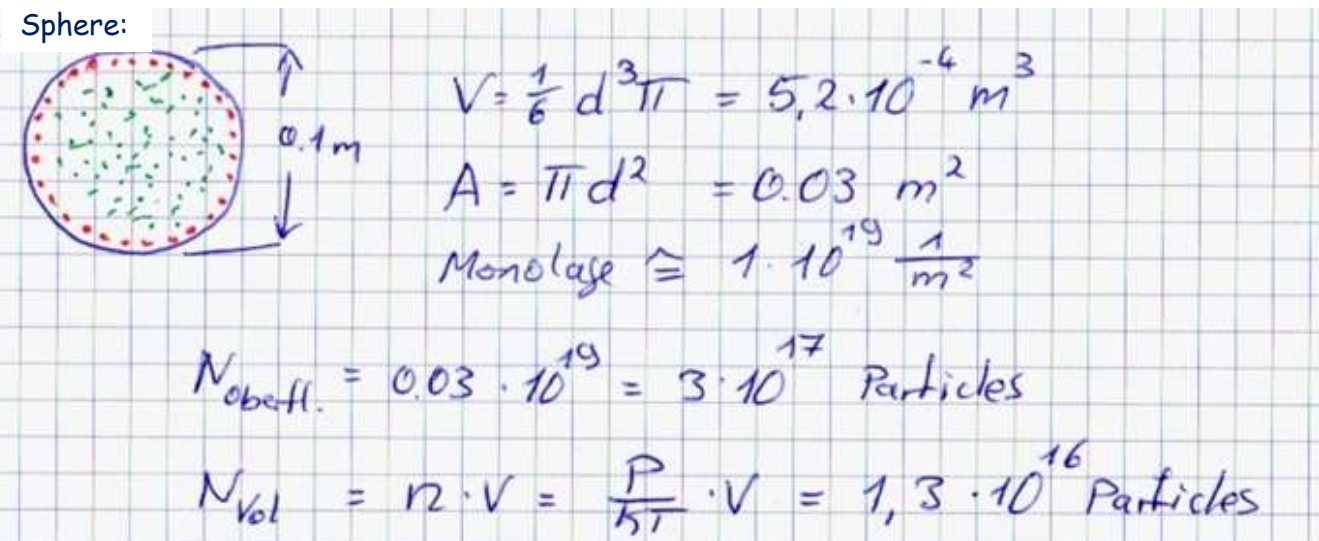 Sphere:
0.1m
V = 1/6 d³π = 5,2·10⁻⁴ m³
A = πd² = 0.03 m²
Monolage ≙ 1·10¹⁹ 1/m²
N_Oberfl. = 0.03 · 10¹⁹ = 3·10¹⁷ Particles
N_Vol = n·V = P/kT · V = 1,3·10¹⁶ Particles